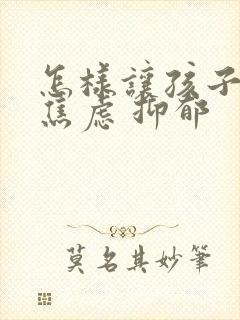 怎樣讓孩子
焦慮抑郁
莫名其妙筆